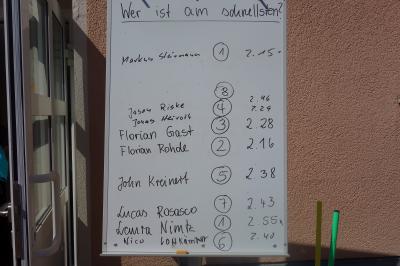 Wer ist am schnellsten?
Markus Steinmann 1 2.15
8 2.46
Jason Riske 4 2.29
Jonas Heiroth
Florian Gast 3 2.28
Florian Rohde 2 2.16
John Kreinett 5 2.38
Lucas Rosasco 7 2.43
Laura Nimtz 1 2.55
Nico 6 2.40